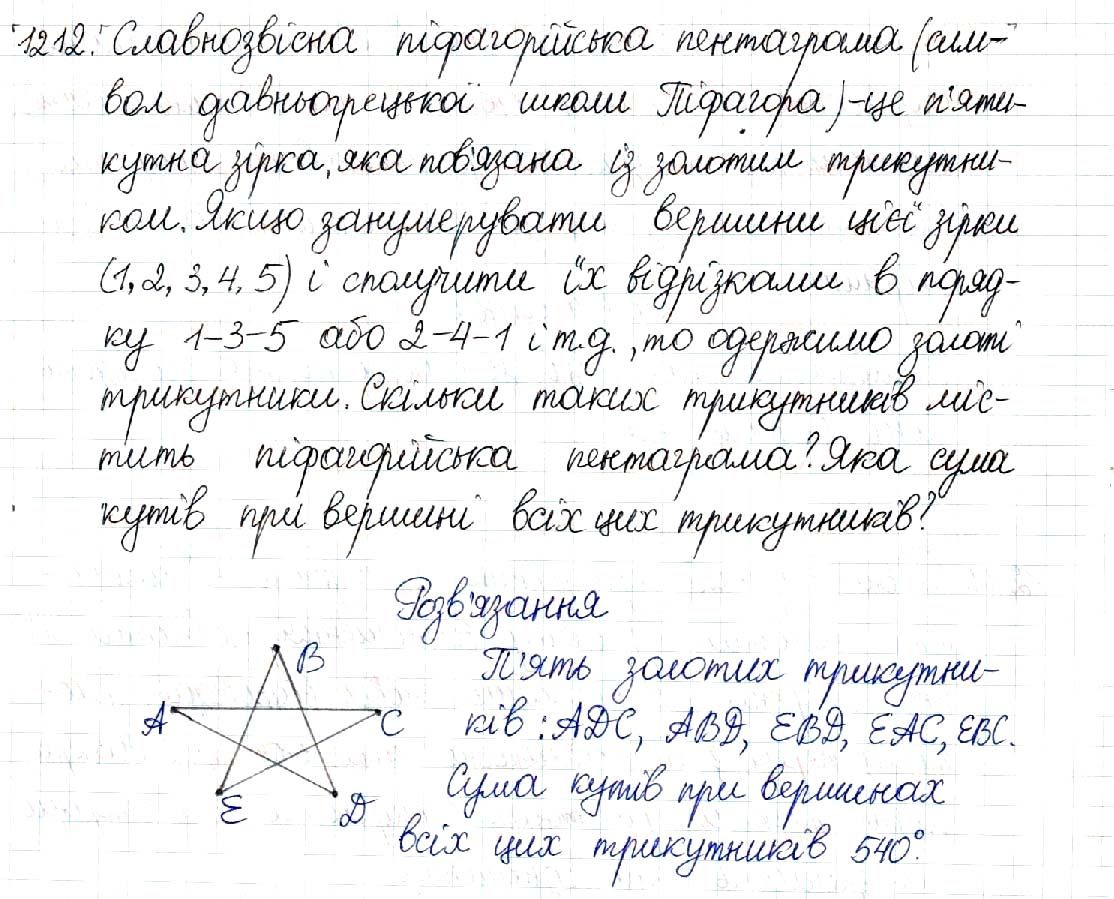 1212. Славнозвісна піфагорійська пентаграма (сим-
вол давньогрецької школи Піфагора) - це п'яти-
кутна зірка, яка пов'язана із золотим трикутни-
ком. Якщо занумерувати вершини цієї зірки
(1, 2, 3, 4, 5) і сполучити їх відрізками в поряд-
ку 1-3-5 або 2-4-1 і т.д., то одержимо золоті
трикутники. Скільки таких трикутників міс-
тить піфагорійська пентаграма? Яка сума
кутів при вершині всіх цих трикутників?
Розв'язання
П'ять золотих трикутни-
ків: ADC, ABD, EBD, EAC, EBC.
Сума кутів при вершинах
всіх цих трикутників 540°.
B
A
C
E
D